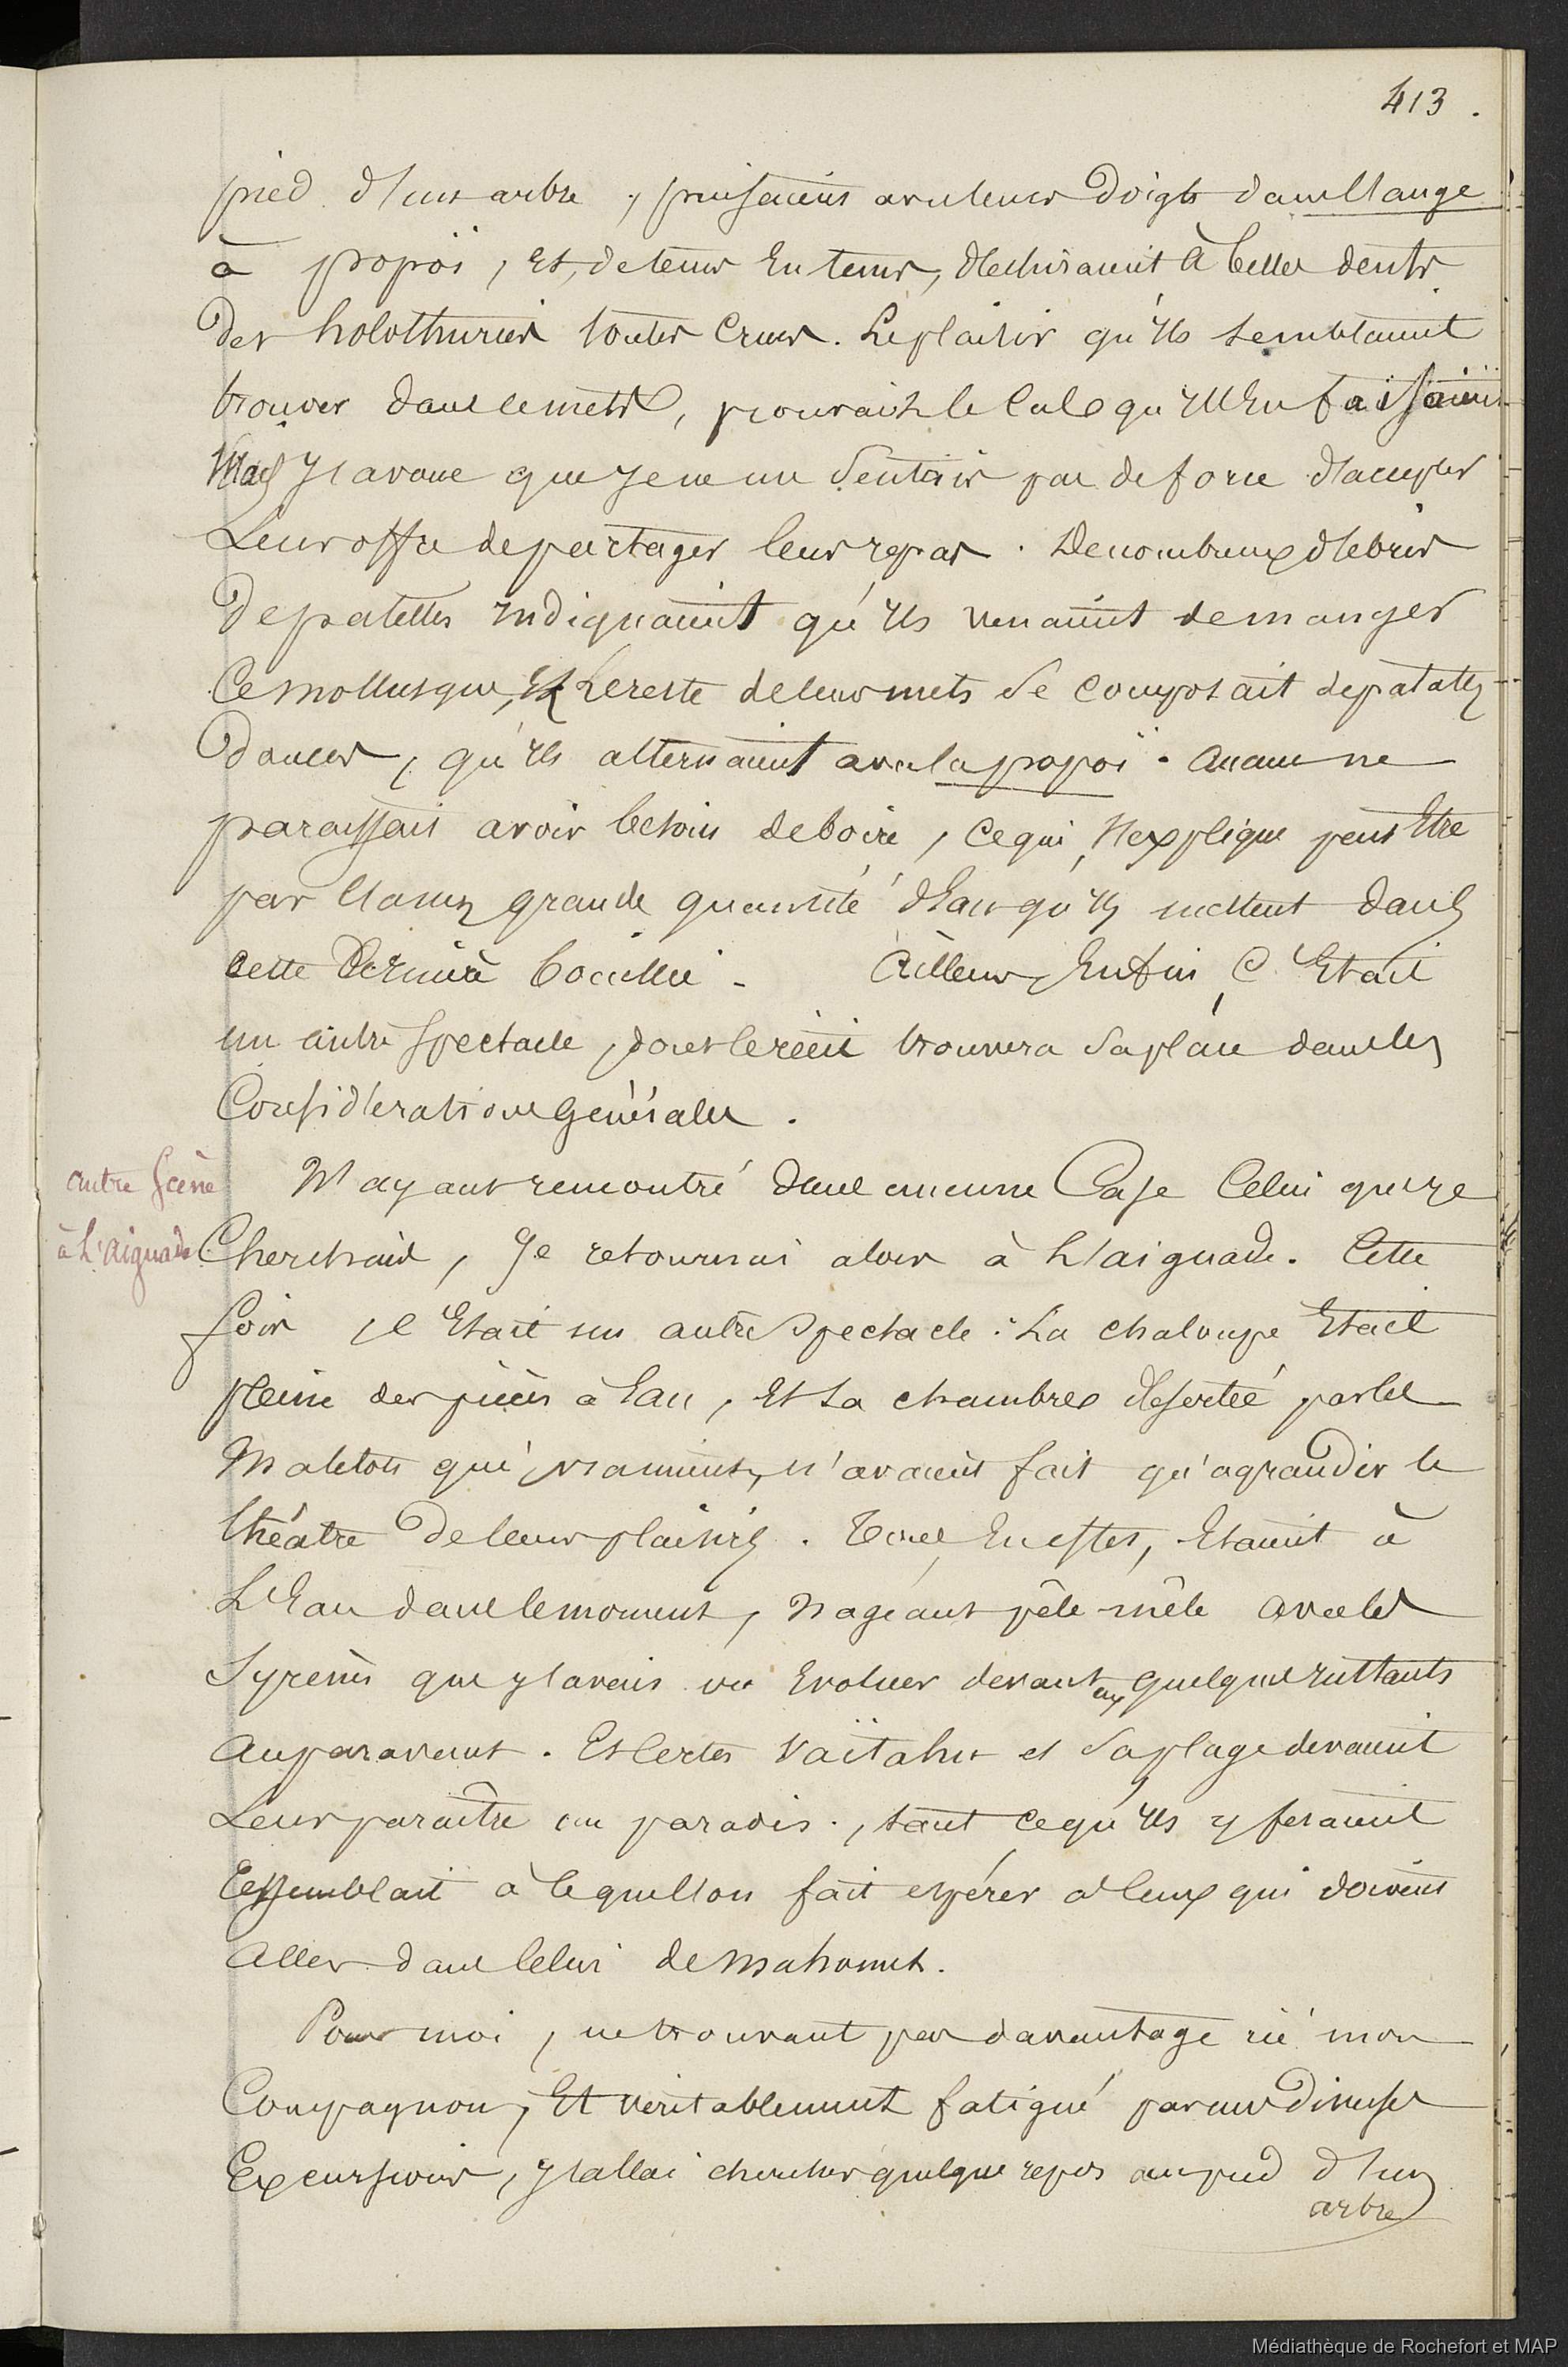 413.
pied d'un arbre, puisaient avec leurs doigts dans l'auge
à popoï, et, de temps en temps, déchiraient à belles dents
des holothuries toutes crues. Le plaisir qu'ils semblaient
trouver dans ce mets, prouvait le cas qu'ils en faisaient
Mais j'avoue que je ne me sentais pas de force d'accepter
Leur offre de partager leur repas. De nombreux débris
De patelles indiquaient qu'ils venaient de manger
Ce mollusque, Et Le reste de leurs mets se composait de patates
Douces, qu'ils alternaient avec la popoï. Aucun ne
paraissait avoir besoin de boire, ce qui s'explique peut être
par l'assez grande quantité d'eau qu'ils mettent dans
cette dernière bouillie. Ailleurs, Enfin, C'Etait
un autre spectacle, dont le récit trouvera sa place dans les
Considérations Générales.
autre scène
à L'aiguade.
N'ayant rencontré dans aucune Case Celui que je
Cherchais, Je retournai alors à L'aiguade. Cette
fois il Etait un autre Spectacle: La chaloupe Etait
pleine des pièces à Eau, Et sa chambre désertée par les
Matelots qui, vraiment, n'avaient fait qu'agrandir le
théatre De leurs plaisirs. Tous, En effet, Etaient à
L'Eau dans le moment, Nageant pêle-mêle avec les
Syrènes que j'avais vu Evoluer devant eux quelques instants
auparavant. Et certes Vaïtahu et sa plage devaient
Leur paraître un paradis, tant ce qu'ils y faisaient
ressemblait à ce que l'on fait espérer à ceux qui doivent
aller dans celui de Mahomet.
Pour moi, ne trouvant pas davantage ici mon
Compagnon, Et véritablement fatigué par mes diverses
Excursions, j'allai chercher quelque repos au pied d'un
arbre
Médiathèque de Rochefort et MAP